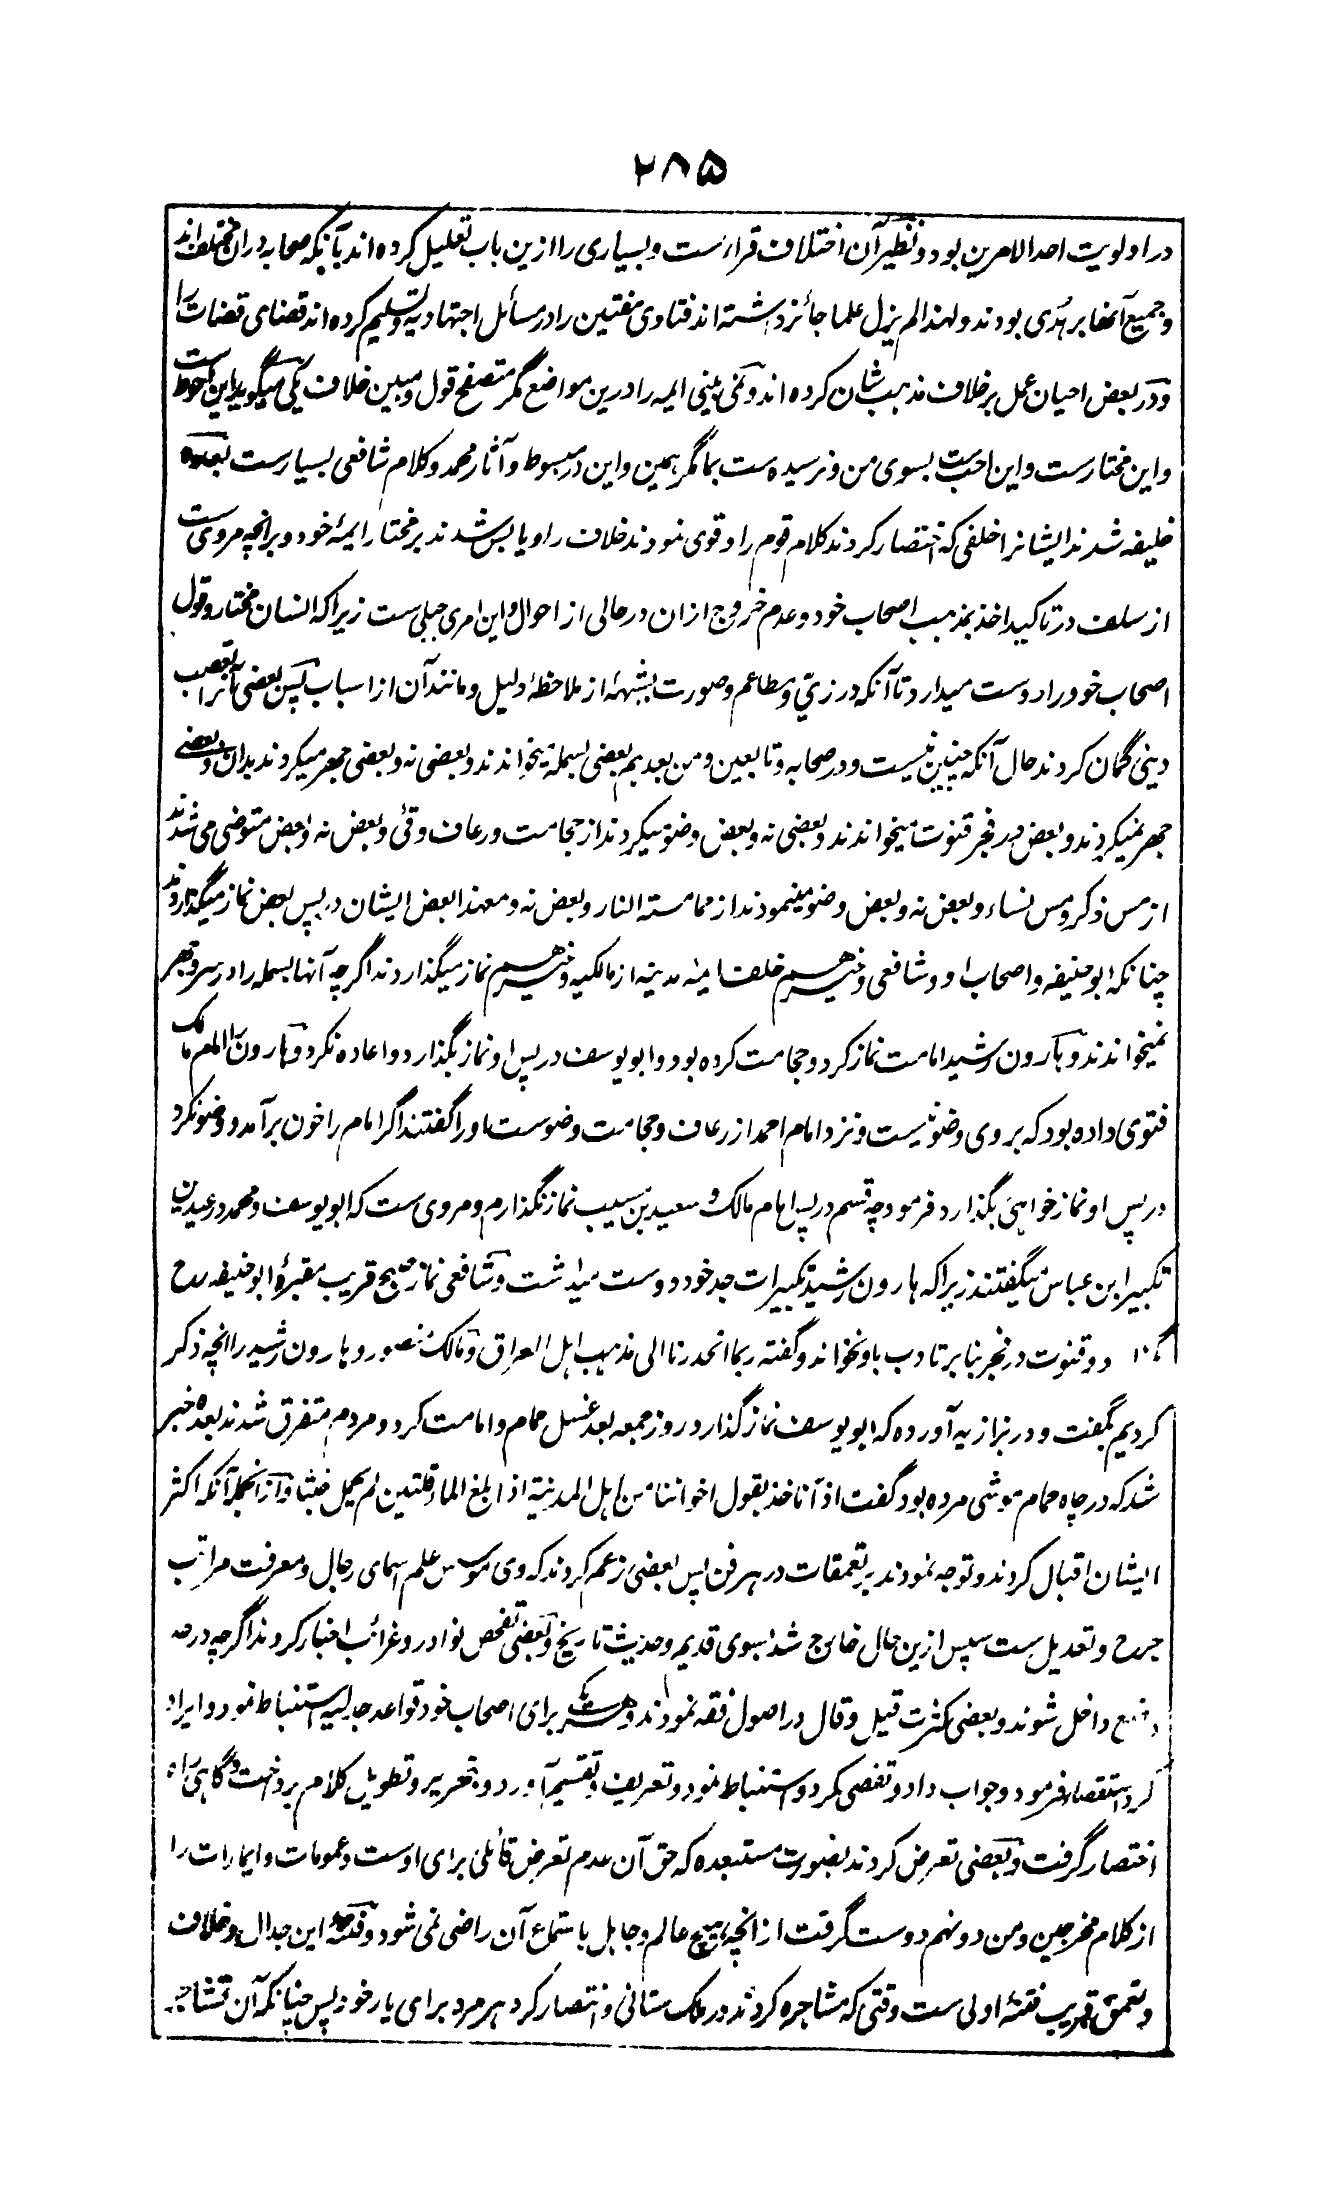 ۲۸۵
در اولویت احد الامرین بود و نظیر آن اختلاف قراءست و بسیاری را ازین باب تعلیل کرده اند بآنکه صحابه دران مختلف اند
و جمیع آنها بر هدی بودند و لهذا لم یزل علما جائز داشته اند فتاوی مفتین را در مسائل اجتهادیه و تسلیم کرده اند قضای قضات را
و در بعض احیان عمل بر خلاف مذهب شان کرده اند و نمی بینی ایمه را درین مواضع مگر متصفح قول و مبین خلاف یکی میگوید این احوط ست
و این مختارست و این احب ست بسوی من و نرسیده ست بما مگر همین و این در مبسوط و آثار محمد و کلام شافعی بسیارست بعده
خلیفه شدند ایشانرا خلفی که اختصار کردند کلام قوم را و قوی نمودند خلاف را و یا بس شدند بر مختار ایمۀ خود و برانچه مروی ست
از سلف در تاکید اخذ بمذهب اصحاب خود و عدم خروج ازان در حالی از احوال و این امری جبلی ست زیرا که انسان مختار و قول
اصحاب خود را دوست میدارد تا آنکه در زی و مطاعم و صورت بشبهۀ از ملاحظۀ دلیل و مانند آن از اسباب پس بعضی آنرا تعصب
دینی گمان کردند حال آنکه چنین نیست و در صحابه و تابعین و من بعدهم بعضی بسمله میخواندند و بعضی نه و بعضی جهر میکردند بدان و بعضی
جهر نمیکردند و بعض در فجر قنوت میخواندند و بعضی نه و بعض وضو میکردند از حجامت و رعاف و قی و بعض نه و بعض متوضی می شدند
از مس ذکر و مس نساء و بعض نه و بعض وضو مینمودند از ممامسته النار و بعض نه و معهذا بعض ایشان در پس بعض نماز میگذاردند
چنانکه ابوحنیفه و اصحاب او و شافعی و غیرهم خلف ایمۀ مدینه از مالکیه و غیرهم نماز میگذاردند اگرچه آنها بسمله را در سر و جهر
نمیخواندند و هارون رشید امامت نماز کرد و حجامت کرده بود و ابو یوسف در پس او نماز بگذارد و اعاده نکرد و هارون را امام مالک
فتوی داده بود که بروی وضو نیست و نزد امام احمد از رعاف و حجامت وضوست او را گفتند اگر امام را خون برآمد و وضو نکرد
در پس او نماز خواهی بگذارد فرمود چه قسم در پس امام مالک و سعید بن مسیب نماز نگذارم و مروی ست که ابو یوسف و محمد در عیدین
تکبیر ابن عباس میگفتند زیرا که هارون رشید تکبیرات جد خود دوست میداشت و شافعی نماز صبح قریب مقبرۀ ابوحنیفه رح
و قنوت در فجر بنا بر تادب باو نخواند و گفته ربما انحدرنا الی مذهب اهل العراق و مالک منصور و هارون رشید را انچه ذکر
کردیم بگفت و در بزازیه آورده که ابو یوسف نماز گذارد روز جمعه بعد غسل حمام و امامت کرد و مردم متفرق شدند بعده خبر
شد که در چاه حمام موشی مرده بود گفت اذاً ناخذ بقول اخواننا من اهل المدینة اذا بلغ الماء قلتین لم یحمل خبثا و ازانجمله آنکه اکثر
ایشان اقبال کردند و توجه نمودند بر تعمقات در هر فن پس بعضی زعم کردند که وی موسس علم اسمای رجال و معرفت مراتب
جرح و تعدیل ست سپس ازین حال خارج شد بسوی قدیم و حدیث تاریخ و بعضی تفحص نوادر و غرائب اخبار کردند اگرچه در حد
داخل شوند و بعضی بکثرت قیل و قال در اصول فقه نمودند و هر یک برای اصحاب خود قواعد جدلیه استنباط نمود و ایراد
کرد استقصا فرمود و جواب داد و تفصی کرد و استنباط نمود و تعریف و تقسیم آورد و بتحریر و تطویل کلام پرداخت و گاهی راه
اختصار گرفت و بعضی تعرض کردند بصورت مستبعده که حق آن عدم تعرض قائلی برای اوست و عمومات و ایمارات را
از کلام مخرجین و من دونهم دوست گرفت از انچه هیچ عالم و جاهل باستماع آن راضی نمی شود و فتنۀ این جدال و خلاف
و تعمق قریب فتنۀ اولی ست وقتی که مشاجره کردند در ملک ستانی و انتصار کرد هر مرد برای یار خود پس چنانکه آن تشاجر